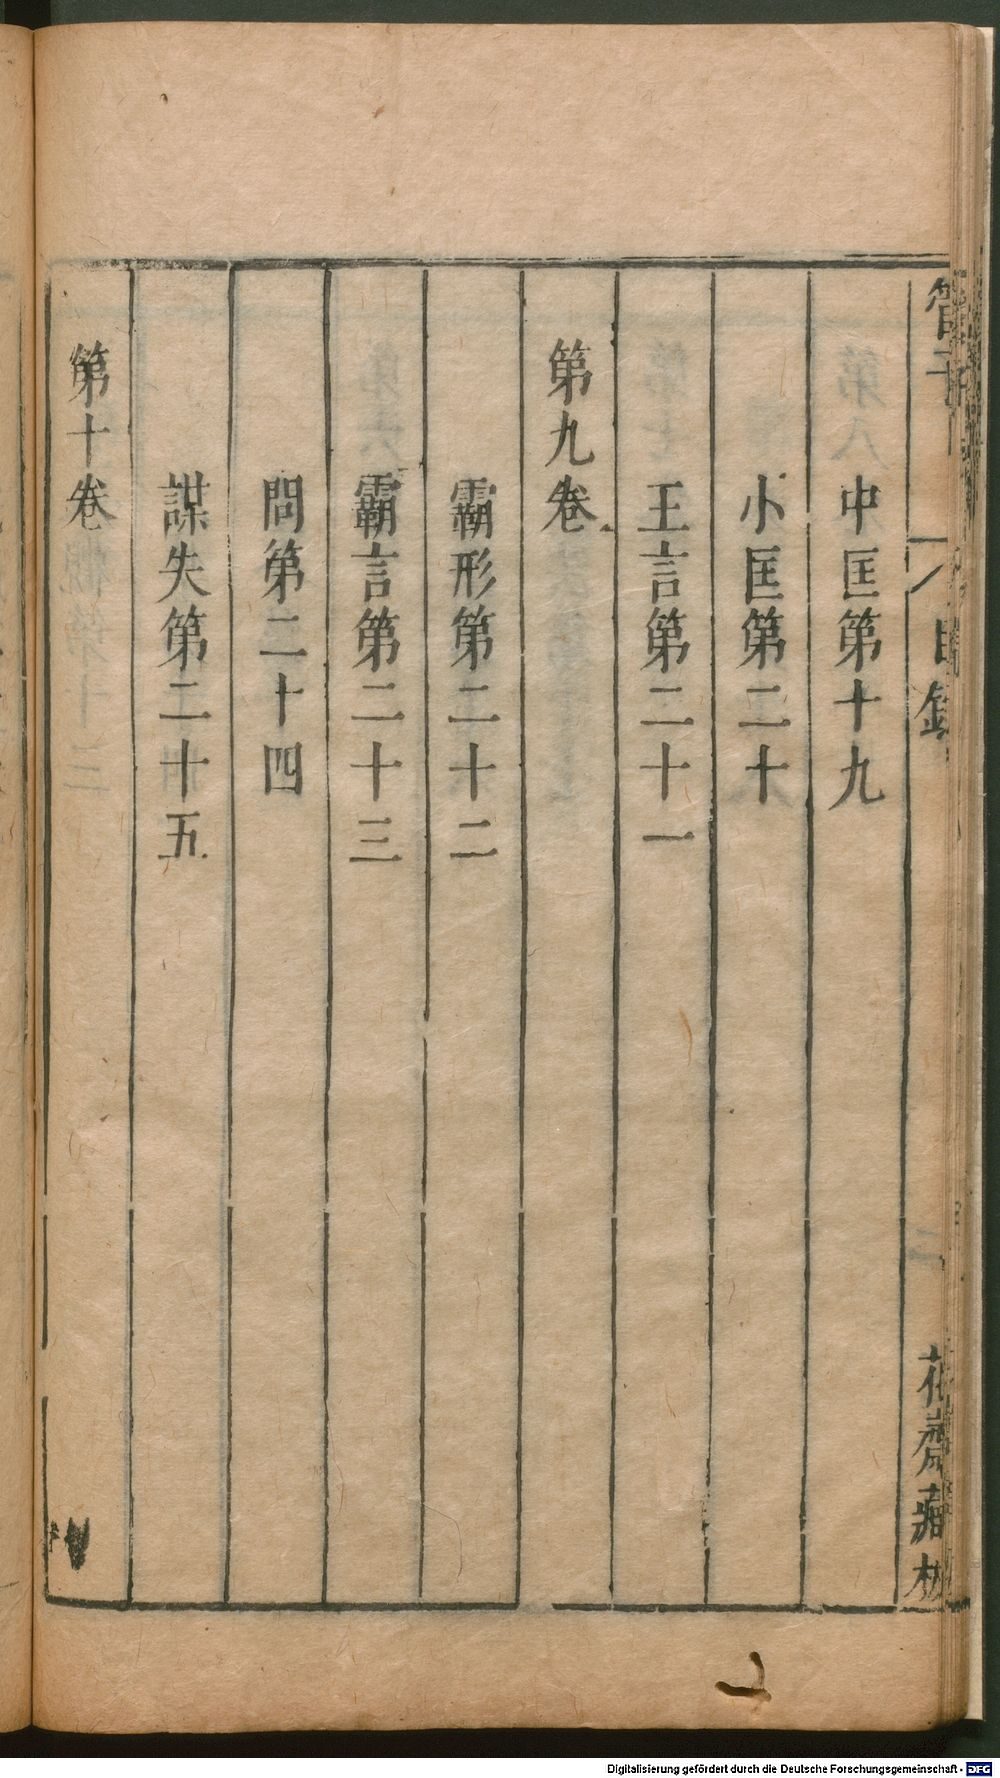 管子
目錄
花齋藏板
中匡第十九
小匡第二十
王言第二十一
第九卷
霸形第二十二
霸言第二十三
問第二十四
謀失第二十五
第十卷
Digitalisierung gefördert durch die Deutsche Forschungsgemeinschaft - DFG